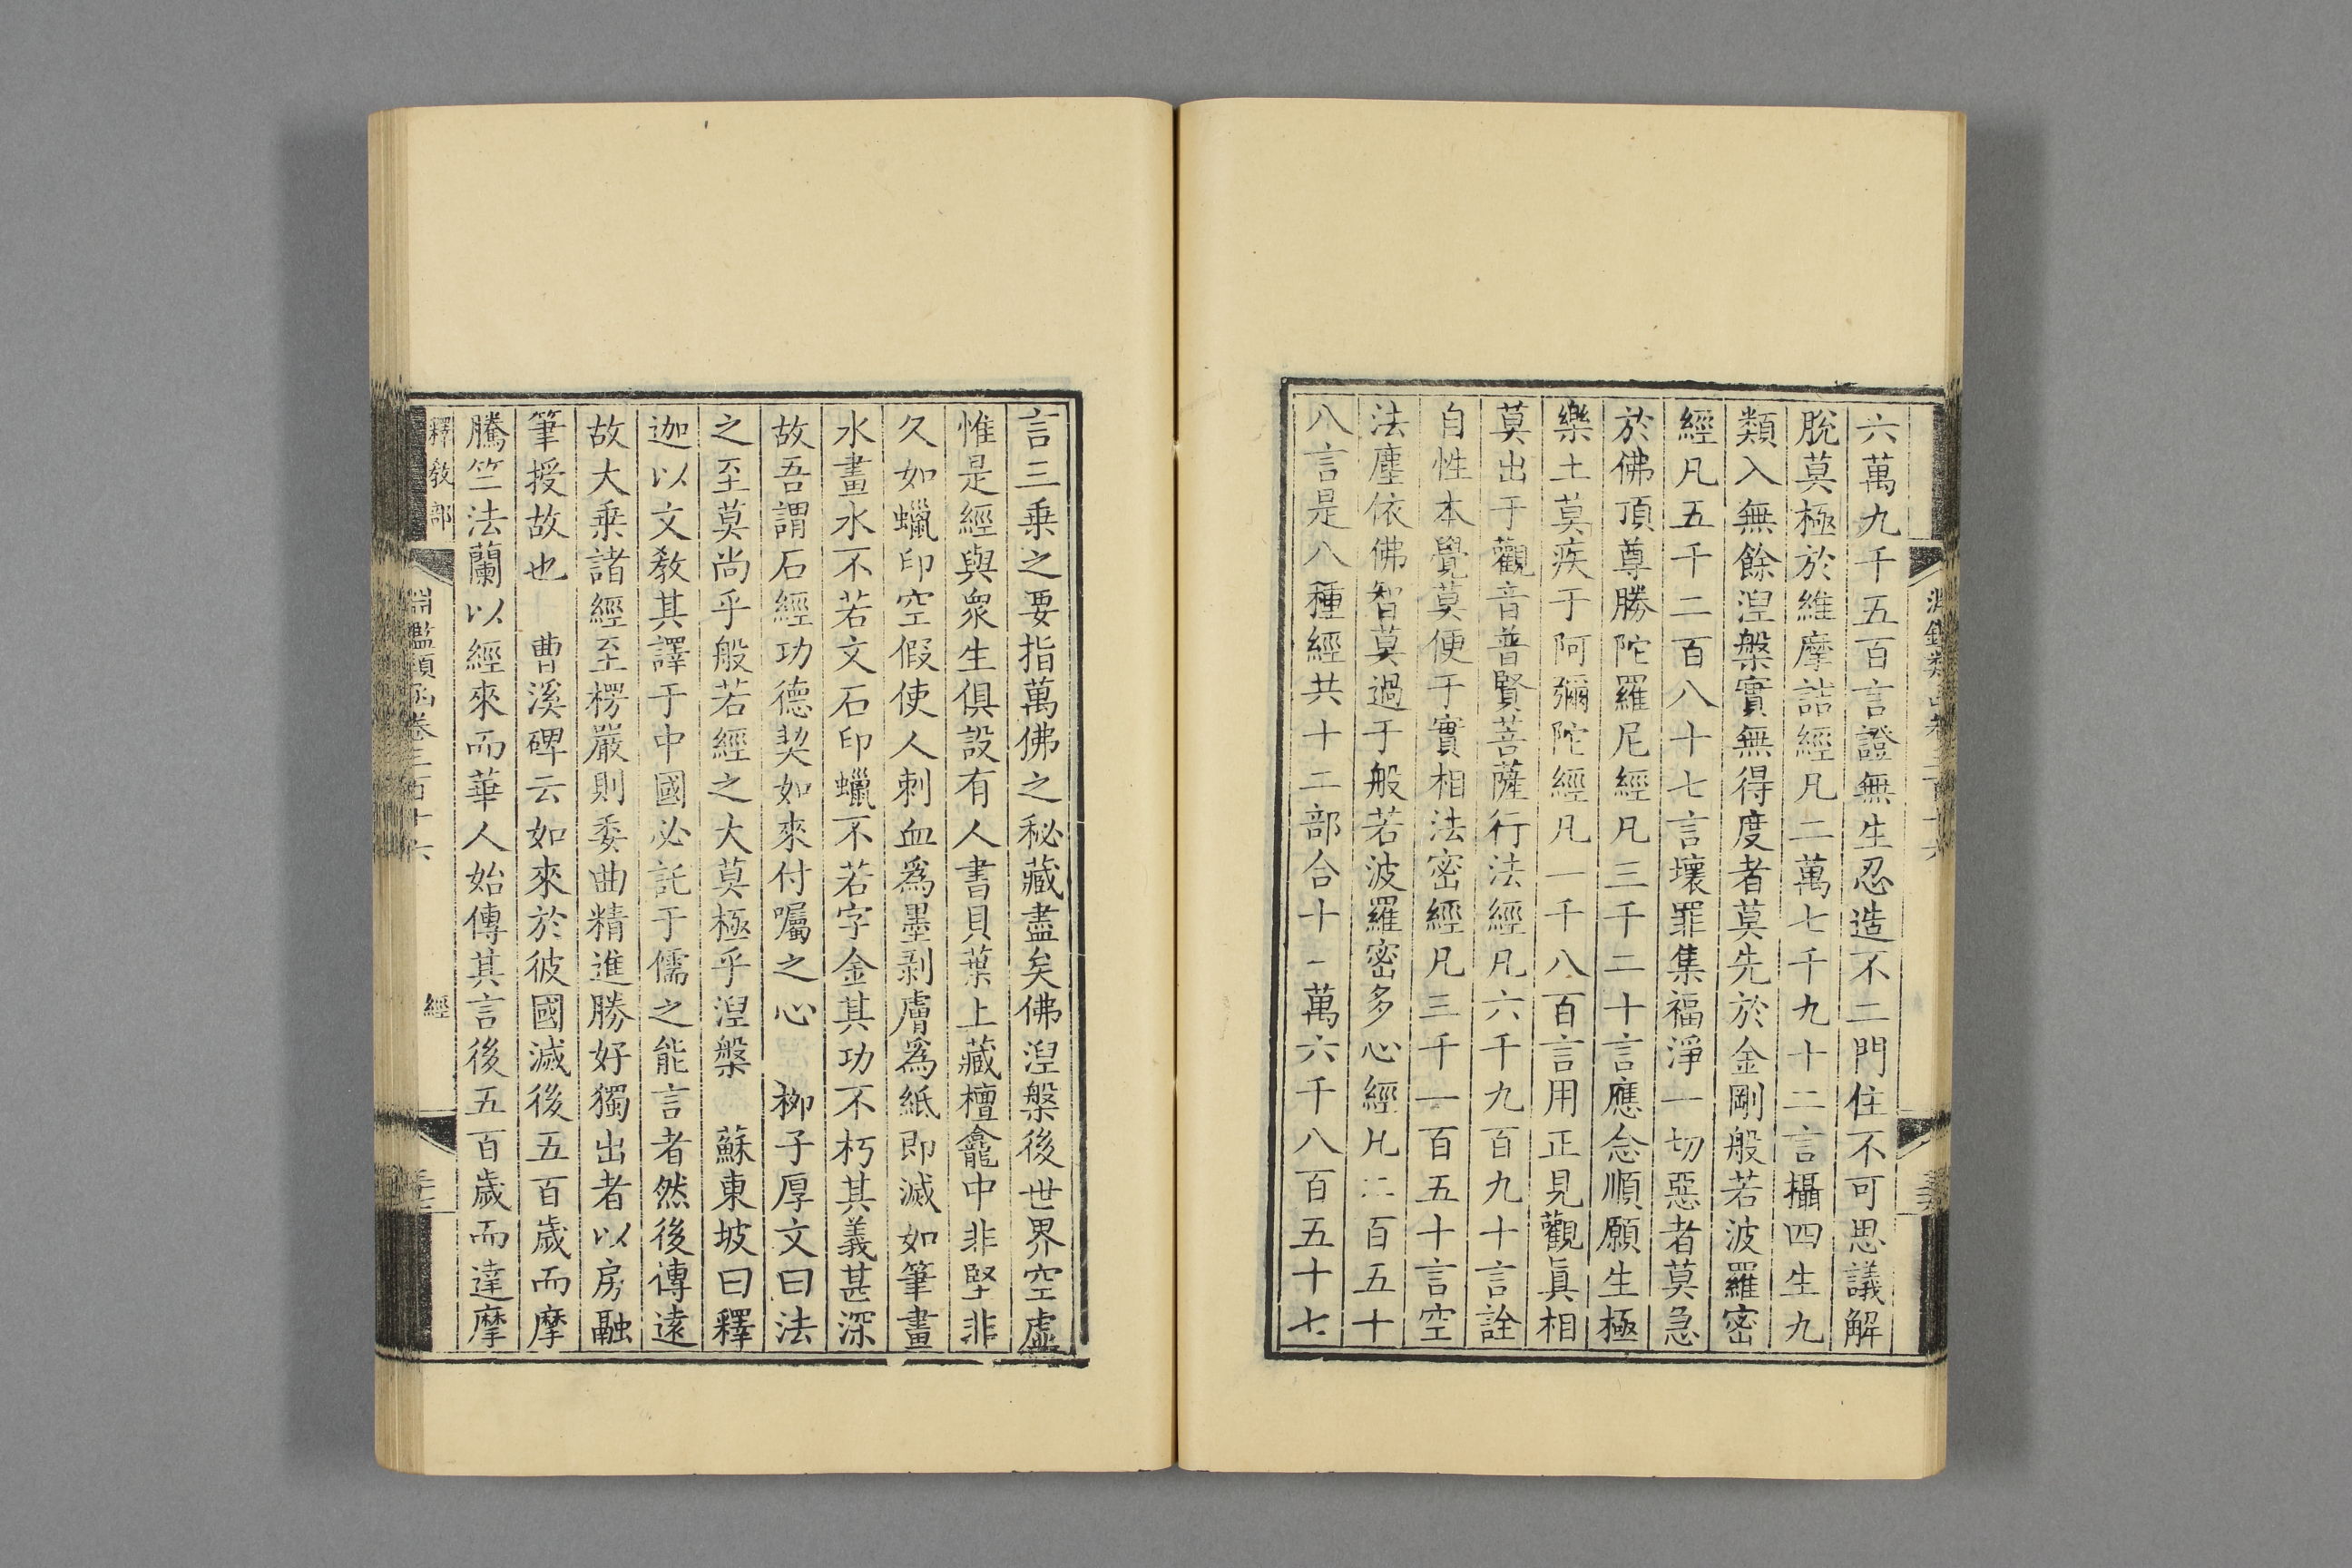 六萬九千五百言證無生忍造不二門住不可思議解
脫莫極於維摩詰經凡二萬七千九十二言攝四生九
類入無餘湼槃實無得度者莫先於金剛般若波羅密
經凡五千二百八十七言壞罪集福淨一切惡者莫急
於佛頂尊勝陀羅尼經凡三千二十言應念順願生極
樂土莫疾于阿彌陀經凡一千八百言用正見觀眞相
莫出于觀音普賢菩薩行法經凡六千九百九十言詮
自性本覺莫便于實相法密經凡三千一百五十言空
法塵依佛智莫過于般若波羅密多心經凡二百五十
八言是八種經共十二部合十一萬六千八百五十七
言三乗之要指萬佛之秘藏盡矣佛湼槃後世界空虛
惟是經與衆生俱設有人書貝葉上藏檀龕中非堅非
久如蠟印空假使人刺血爲墨剥膚爲紙即滅如筆畫
水畫水不若文石印蠟不若字金其功不朽其義甚深
故吾謂石經功德契如來付囑之心　柳子厚文曰法
之至莫尚乎般若經之大莫極乎湼槃　蘇東坡曰釋
迦以文教其譯于中國必託于儒之能言者然後傳遠
故大乗諸經至楞嚴則委曲精進勝好獨出者以房融
筆授故也　曹溪碑云如來於彼國滅後五百歲而摩
騰竺法蘭以經來而華人始傳其言後五百歲而達摩
釋教部
淵鑑類函卷三百十六
經